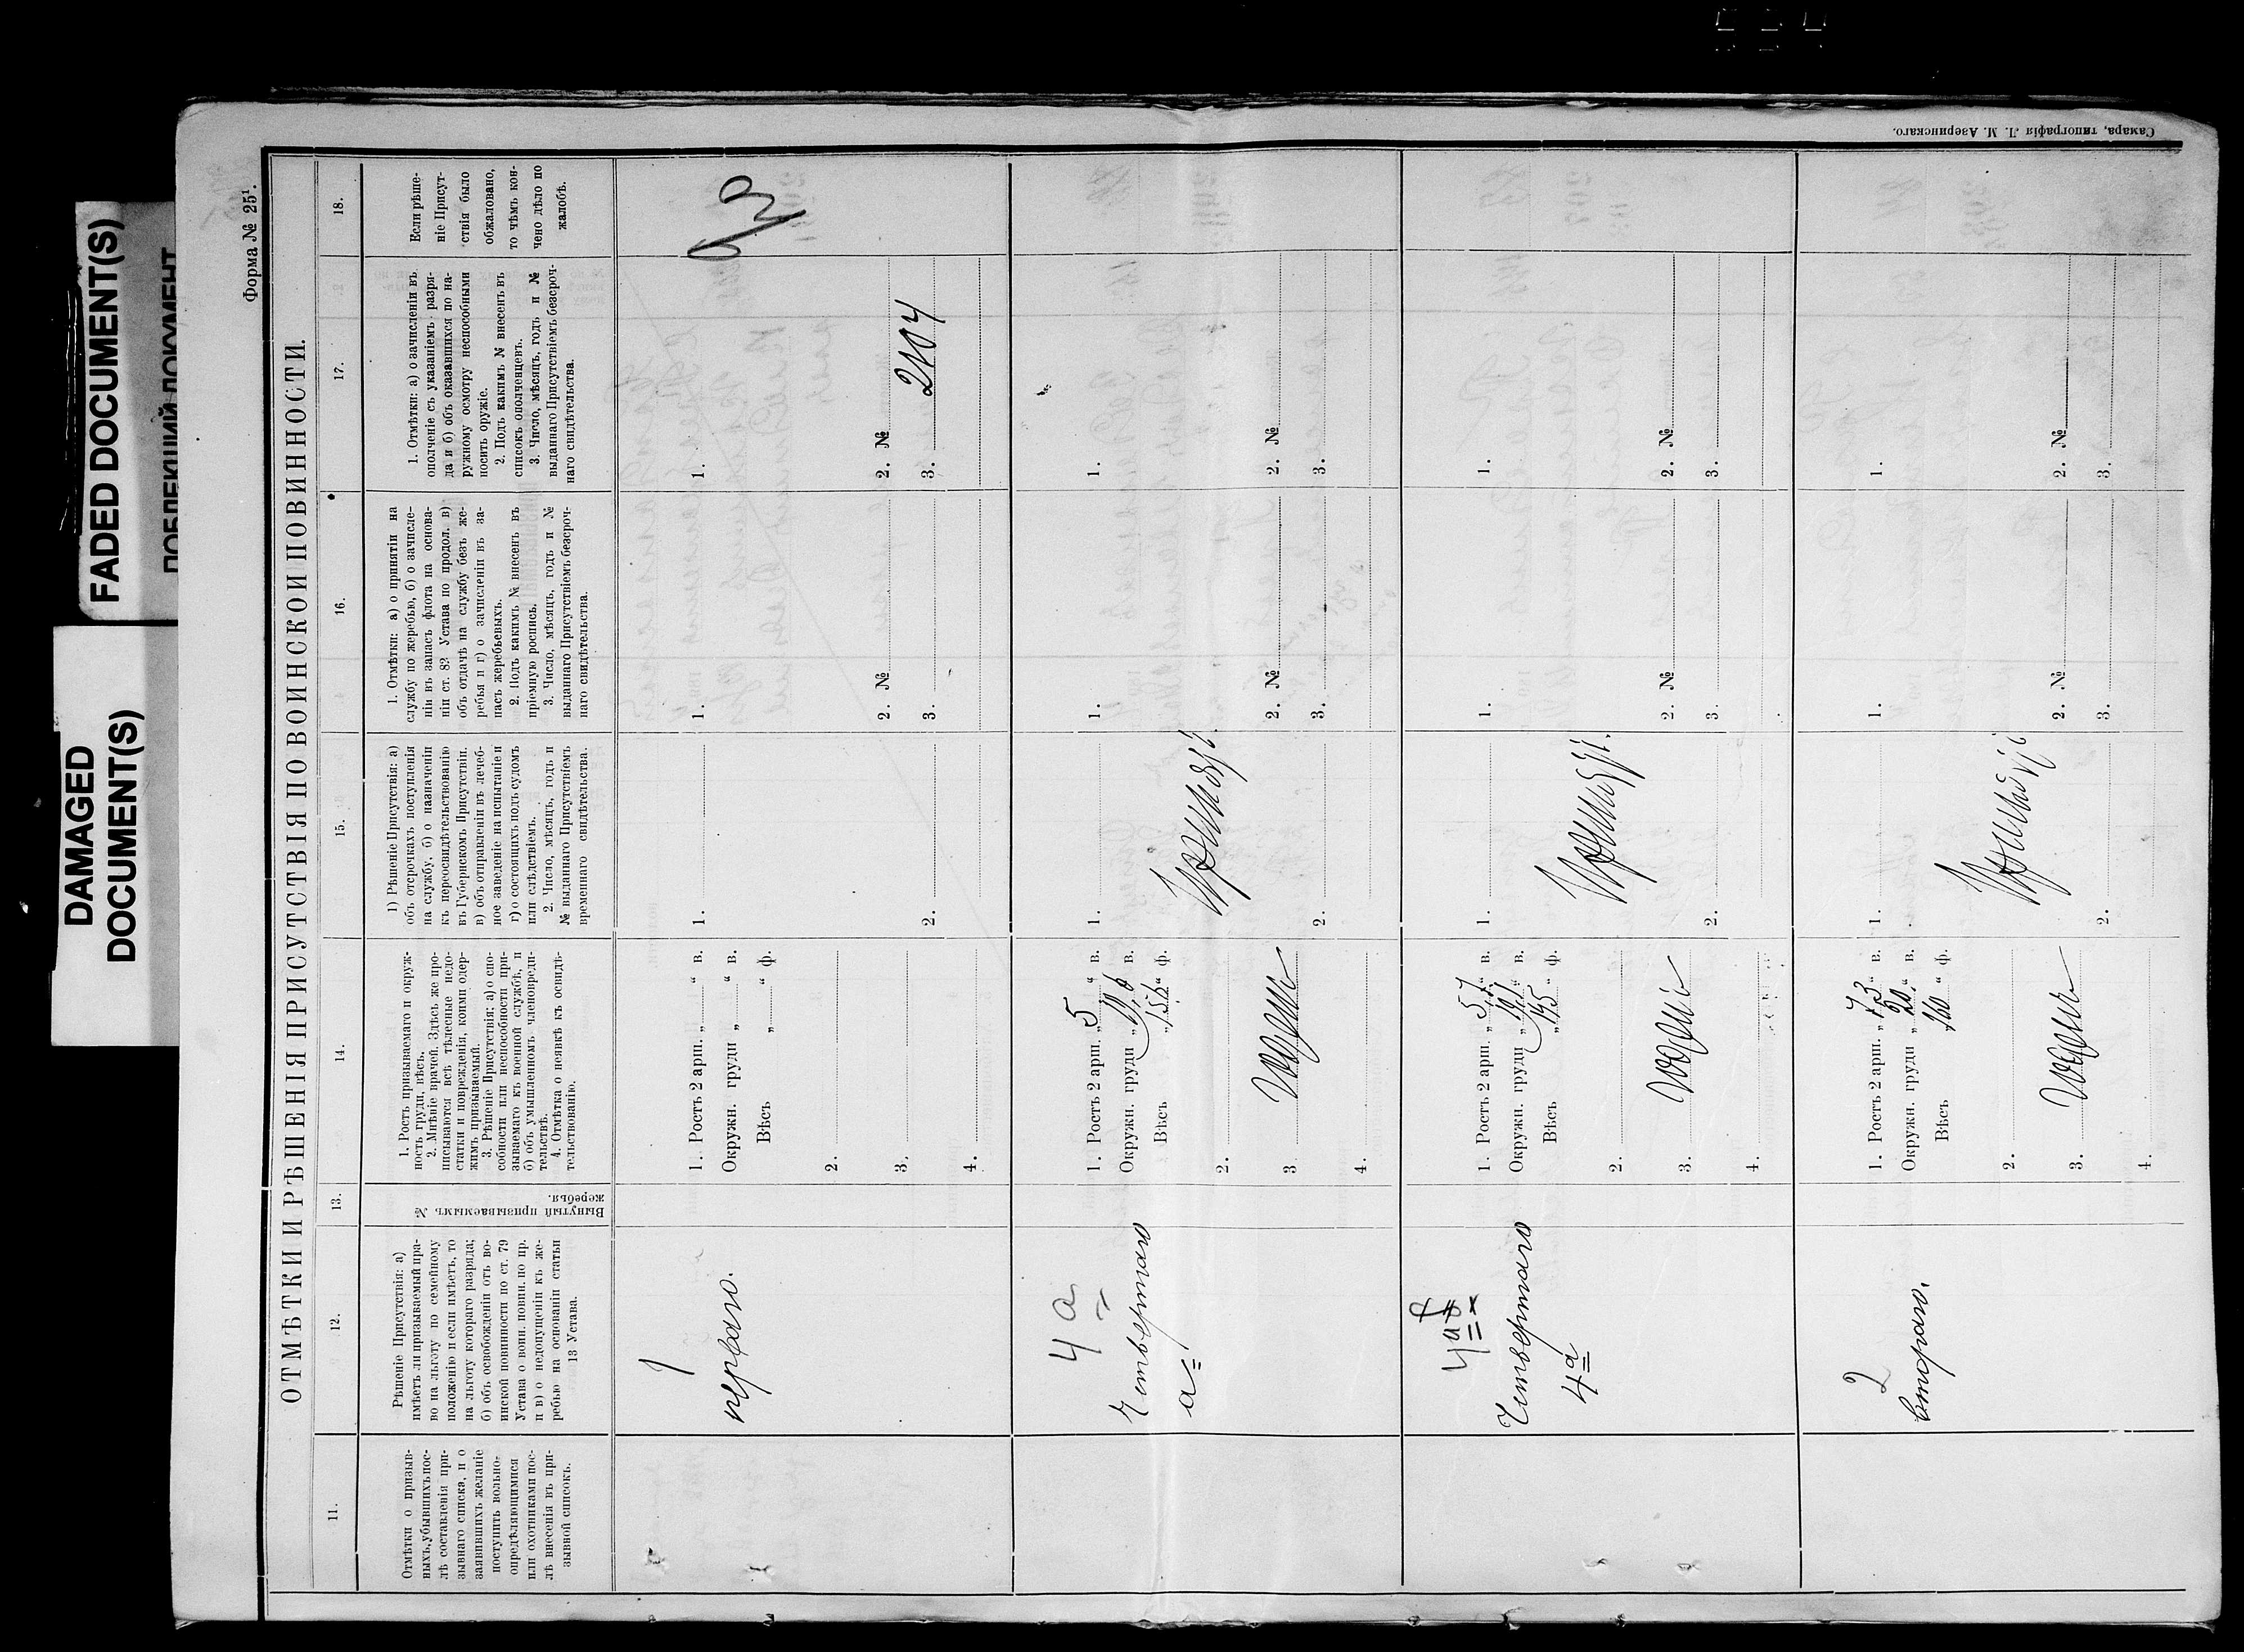 FADED DOCUMENT(S)
DAMAGED
DOCUMENT(S)
Форма № 25¹.
ОТМѢТКИ И РѢШЕНІЯ ПРИСУТСТВІЯ ПО ВОИНСКОЙ ПОВИННОСТИ.
11.
12.
13.
14.
15.
16.
17.
18.
Отмѣтки о призыв-
ныхъ, убывшихъ пос-
лѣ составленія при-
зывнаго списка, и о
заявившихъ желаніе
поступить вольно-
опредѣляющимися
или охотниками пос-
лѣ внесенія въ при-
зывной списокъ.
Рѣшеніе Присутствія: а)
имѣетъ ли призываемый пра-
во на льготу по семейному
положенію и если имѣетъ, то
на льготу котораго разряда;
б) объ освобожденіи отъ во-
инской повинности по ст. 79
Устава о воин. повин. по пр.
и в) о недопущеніи къ же-
ребью на основаніи статьи
13 Устава.
Вынутый призываемымъ №
жеребья.
1. Ростъ призываемаго и окруж-
ность груди, вѣсъ.
2. Мнѣніе врачей. Здѣсь же про-
писываются всѣ тѣлесные недо-
статки и поврежденія, коими одер-
жимъ призываемый.
3. Рѣшеніе Присутствія: а) о спо-
собности или неспособности при-
зываемаго къ военной службѣ, и
б) объ умышленномъ членовреди-
тельствѣ.
4. Отмѣтка о неявкѣ къ освидѣ-
тельствованію.
1) Рѣшеніе Присутствія: а)
объ отсрочкахъ поступленія
на службу, б) о назначеніи
къ переосвидѣтельствованію
въ Губернскомъ Присутствіи.
в) объ отправленіи въ лечеб-
ное заведеніе на испытаніе и
г) о состоящихъ подъ судомъ
или слѣдствіемъ.
2. Число, мѣсяцъ, годъ и
№ выданнаго Присутствіемъ
временнаго свидѣтельства.
1. Отмѣтки: а) о принятіи на
службу по жеребью, б) о зачисле-
ніи въ запасъ флота на основа-
ніи ст. 82 Устава по продол. в)
объ отдачѣ на службу безъ же-
ребья и г) о зачисленіи въ за-
пасъ жеребьевыхъ.
2. Подъ какимъ № внесенъ въ
пріемную роспись.
3. Число, мѣсяцъ, годъ и №
выданнаго Присутствіемъ безсроч-
наго свидѣтельства.
1. Отмѣтки: а) о зачисленіи въ
ополченіе съ указаніемъ разря-
да и б) объ оказавшихся по на-
ружному осмотру неспособными
носить оружіе.
2. Подъ какимъ № внесенъ въ
списокъ ополченцевъ.
3. Число, мѣсяцъ, годъ и №
выданнаго Присутствіемъ безсроч-
наго свидѣтельства.
Если рѣше-
ніе Присут-
ствія было
обжаловано,
то чѣмъ кон-
чено дѣло по
жалобѣ.
1
перваго.
1. Ростъ 2 арш. „ “ в.
Окружн. груди „ “ в.
Вѣсъ „ “ ф.
2.
3.
4.
1.
2.
1.
2. №
3.
1.
2. №
3. 2104
4 а
Четвертаго
а
1. Ростъ 2 арш. „5“ в.
Окружн. груди „ “ в.
Вѣсъ „156“ ф.
2.
3. Годенъ
4.
1.
2.
1.
2. №
3.
1.
2. №
3.
Четвертаго
4 а
1. Ростъ 2 арш. „ “ в.
Окружн. груди „ “ в.
Вѣсъ „145“ ф.
2.
3. Годенъ
4.
1.
2.
1.
2. №
3.
1.
2. №
3.
2
второго.
1. Ростъ 2 арш. „ “ в.
Окружн. груди „20“ в.
Вѣсъ „160“ ф.
2.
3. Годенъ
4.
1.
2.
1.
2. №
3.
1.
2. №
3.
Самара, типографія Л. М. Азеринскаго.